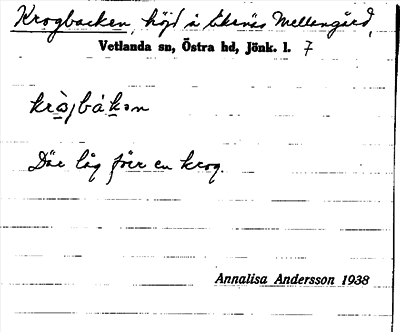 Krogbacken, höjd å Ekenäs Mellangård,
Vetlanda sn, Östra hd, Jönk. l. 7
Där låg förr en krog.
Annalisa Andersson 1938